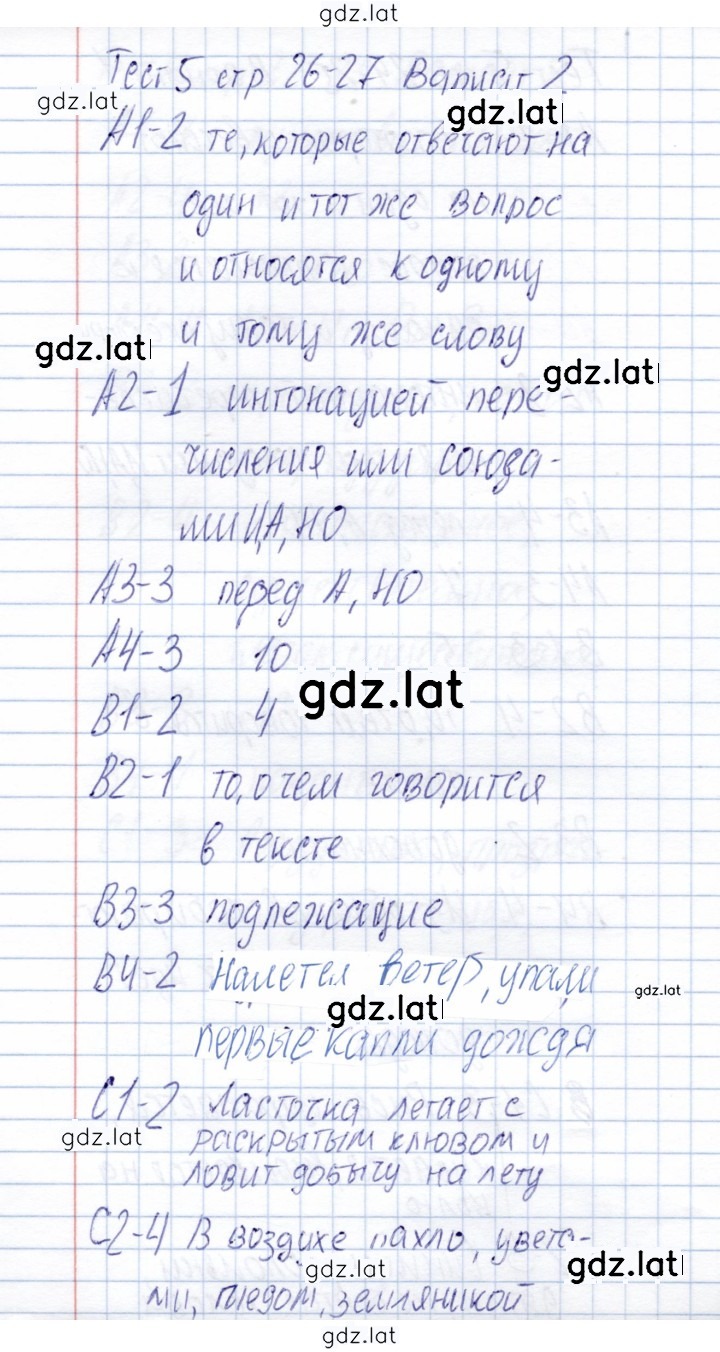 gdz.lat
Тест 5 стр 26-27 Вариант 2
gdz.lat
gdz.lat
А1-2 те, которые отвечают на
один и тот же вопрос
и относятся к одному
и тому же слову
gdz.lat
gdz.lat
А2-1 интонацией пере-
числения или союза-
ми И, А, НО
А3-3 перед А, НО
А4-3 10
gdz.lat
В1-2 4
В2-1 то, о чем говорится
в тексте
В3-3 подлежащие
В4-2 Налетел ветер, упали
gdz.lat
gdz.lat
первые капли дождя
С1-2 Ласточка летает с
gdz.lat
раскрытым клювом и
ловит добычу на лету
С2-4 В воздухе пахло, цвета-
gdz.lat
gdz.lat
ми, медом, земляникой
gdz.lat